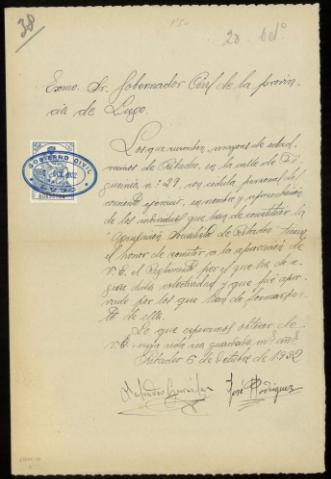 38
Exmo. Sr. Gobernador Civil de la provin-
cia de Lugo.
GOBIERNO CIVIL
LUGO
Los que suscriben, mayores de edad,
vecinos de Ribadeo, en la calle de
nº 29, con cedula personal del
corriente ejercicio, en nombre y representación
de los individuos que han de constituir la
"Agrupación Socialista de Ribadeo" tienen
el honor de someter a la aprobación de
V.E. el Reglamento por el que ha de
dicha colectividad y que fué apro-
bado por los que han de formar par-
te de ella.
Lo que esperamos obtener de
V.E. cuya vida sea guardada
Ribadeo 6 de Octubre de 1932
José Rodriguez